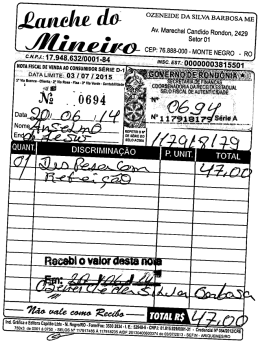 Lanche do
Mineiro
OZENEIDE DA SILVA BARBOSA ME
Av. Marechal Candido Rondon, 2429
Setor 01
CEP: 76.888-000 - MONTE NEGRO - RO
C.N.P.J.: 17.948.632/0001-84
INSC. EST.: 00000003815501
NOTA FISCAL DE VENDA AO CONSUMIDOR SÉRIE D-1
DATA LIMITE: 03 / 07 / 2015
Nº 0694
GOVERNO DE RONDÔNIA
SECRETARIA DE FINANÇAS
COORDENADORIA DA RECEITA ESTADUAL
SELO FISCAL DE AUTENTICIDADE
Nº 0694
Nº 117918179 Série A
Data 20 06 14
Nome Anselmo
117918179
QUANT. DISCRIMINAÇÃO P. UNIT. TOTAL
01 Despesa com 47,00
Refeição
Recebi o valor desta nota
Em: 20 06 14
Ozeneide da Silva Barbosa
Não vale como Recibo
TOTAL R$ 47,00